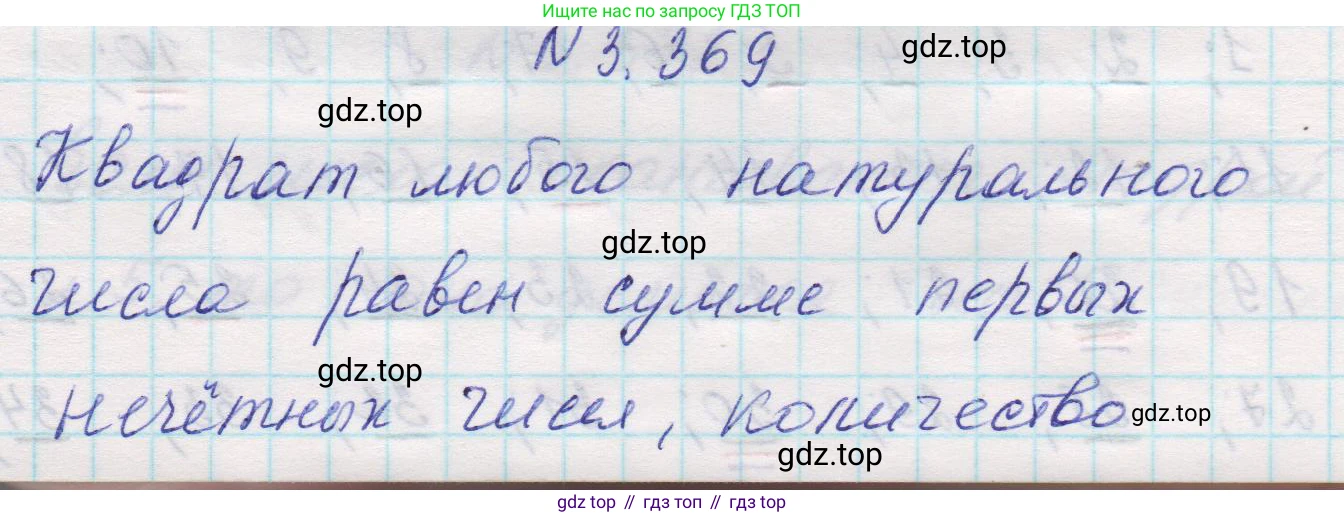 Ищите нас по запросу ГДЗ ТОП
N 3.369
gdz.top
gdz.top
Квадрат любого натурального
gdz.top
числа равен сумме первых
gdz.top
нечётных чисел, количество
gdz.top
gdz.top
gdz top // гдз топ // гдз top